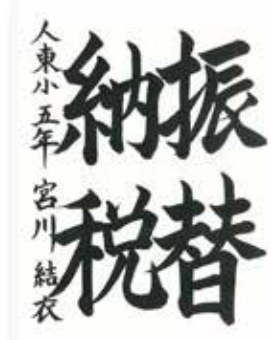 振替
納税
人東小 五年 宮川 結衣